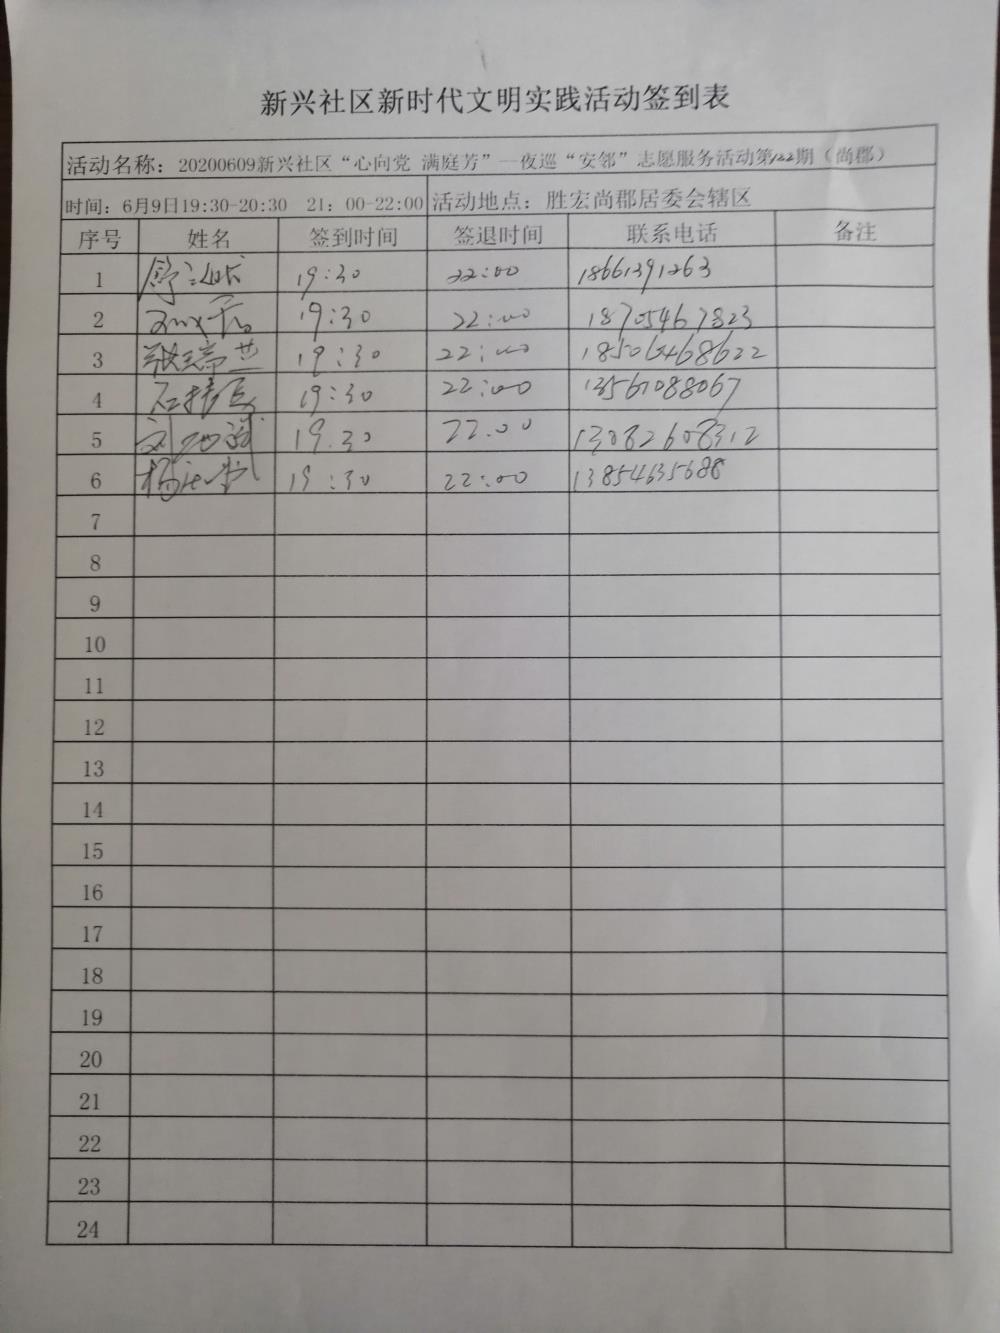 新兴社区新时代文明实践活动签到表
活动名称：20200609新兴社区“心向党 满庭芳”—夜巡“安邻”志愿服务活动第122期（尚郡）
时间：6月9日19:30-20:30 21：00-22:00 活动地点：胜宏尚郡居委会辖区
序号 姓名 签到时间 签退时间 联系电话 备注
1 19:30 22:00 18661391263
2 19:30 22:00 18705467823
3 张瑞兰 19:30 22:00 18506468622
4 19:30 22:00 13561088067
5 19.30 22.00 13082608312
6 19:30 22:00 13854635688
7
8
9
10
11
12
13
14
15
16
17
18
19
20
21
22
23
24